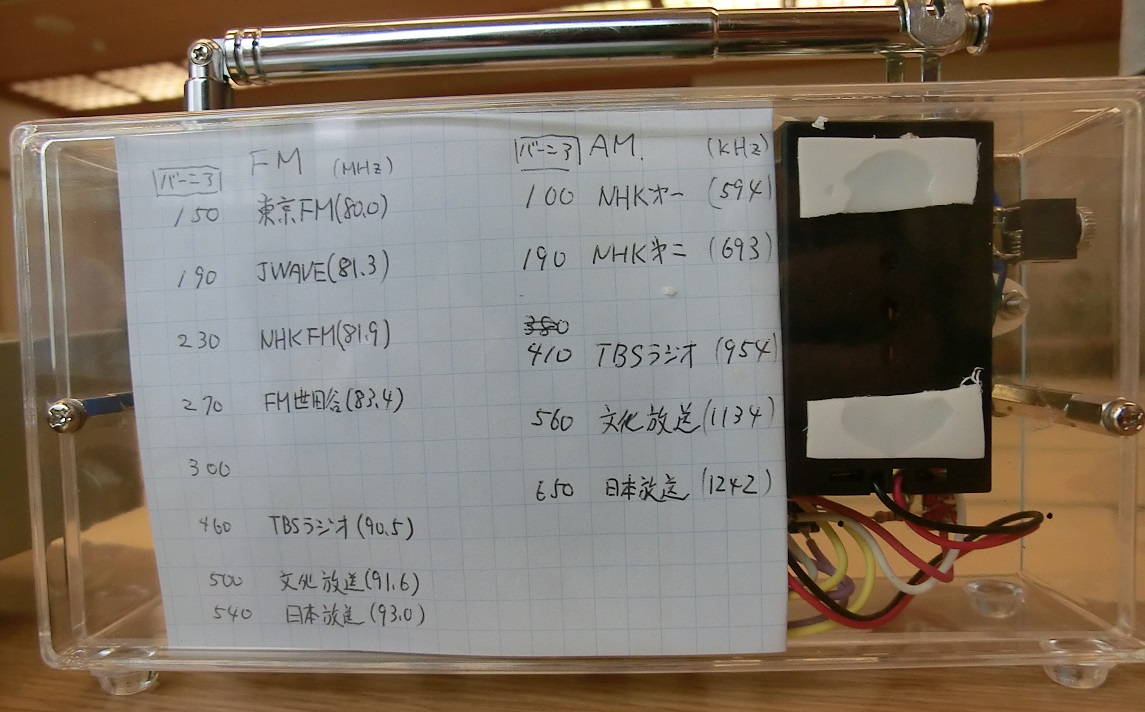 バーニヤ FM (MHz)
150 東京FM(80.0)
190 JWAVE(81.3)
230 NHK FM(81.9)
270 FM世田谷(83.4)
300
460 TBSラジオ(90.5)
500 文化放送(91.6)
540 日本放送(93.0)
バーニヤ AM. (KHz)
100 NHKオー (594)
190 NHKオニ (693)
410 TBSラジオ (954)
560 文化放送(1134)
650 日本放送 (1242)